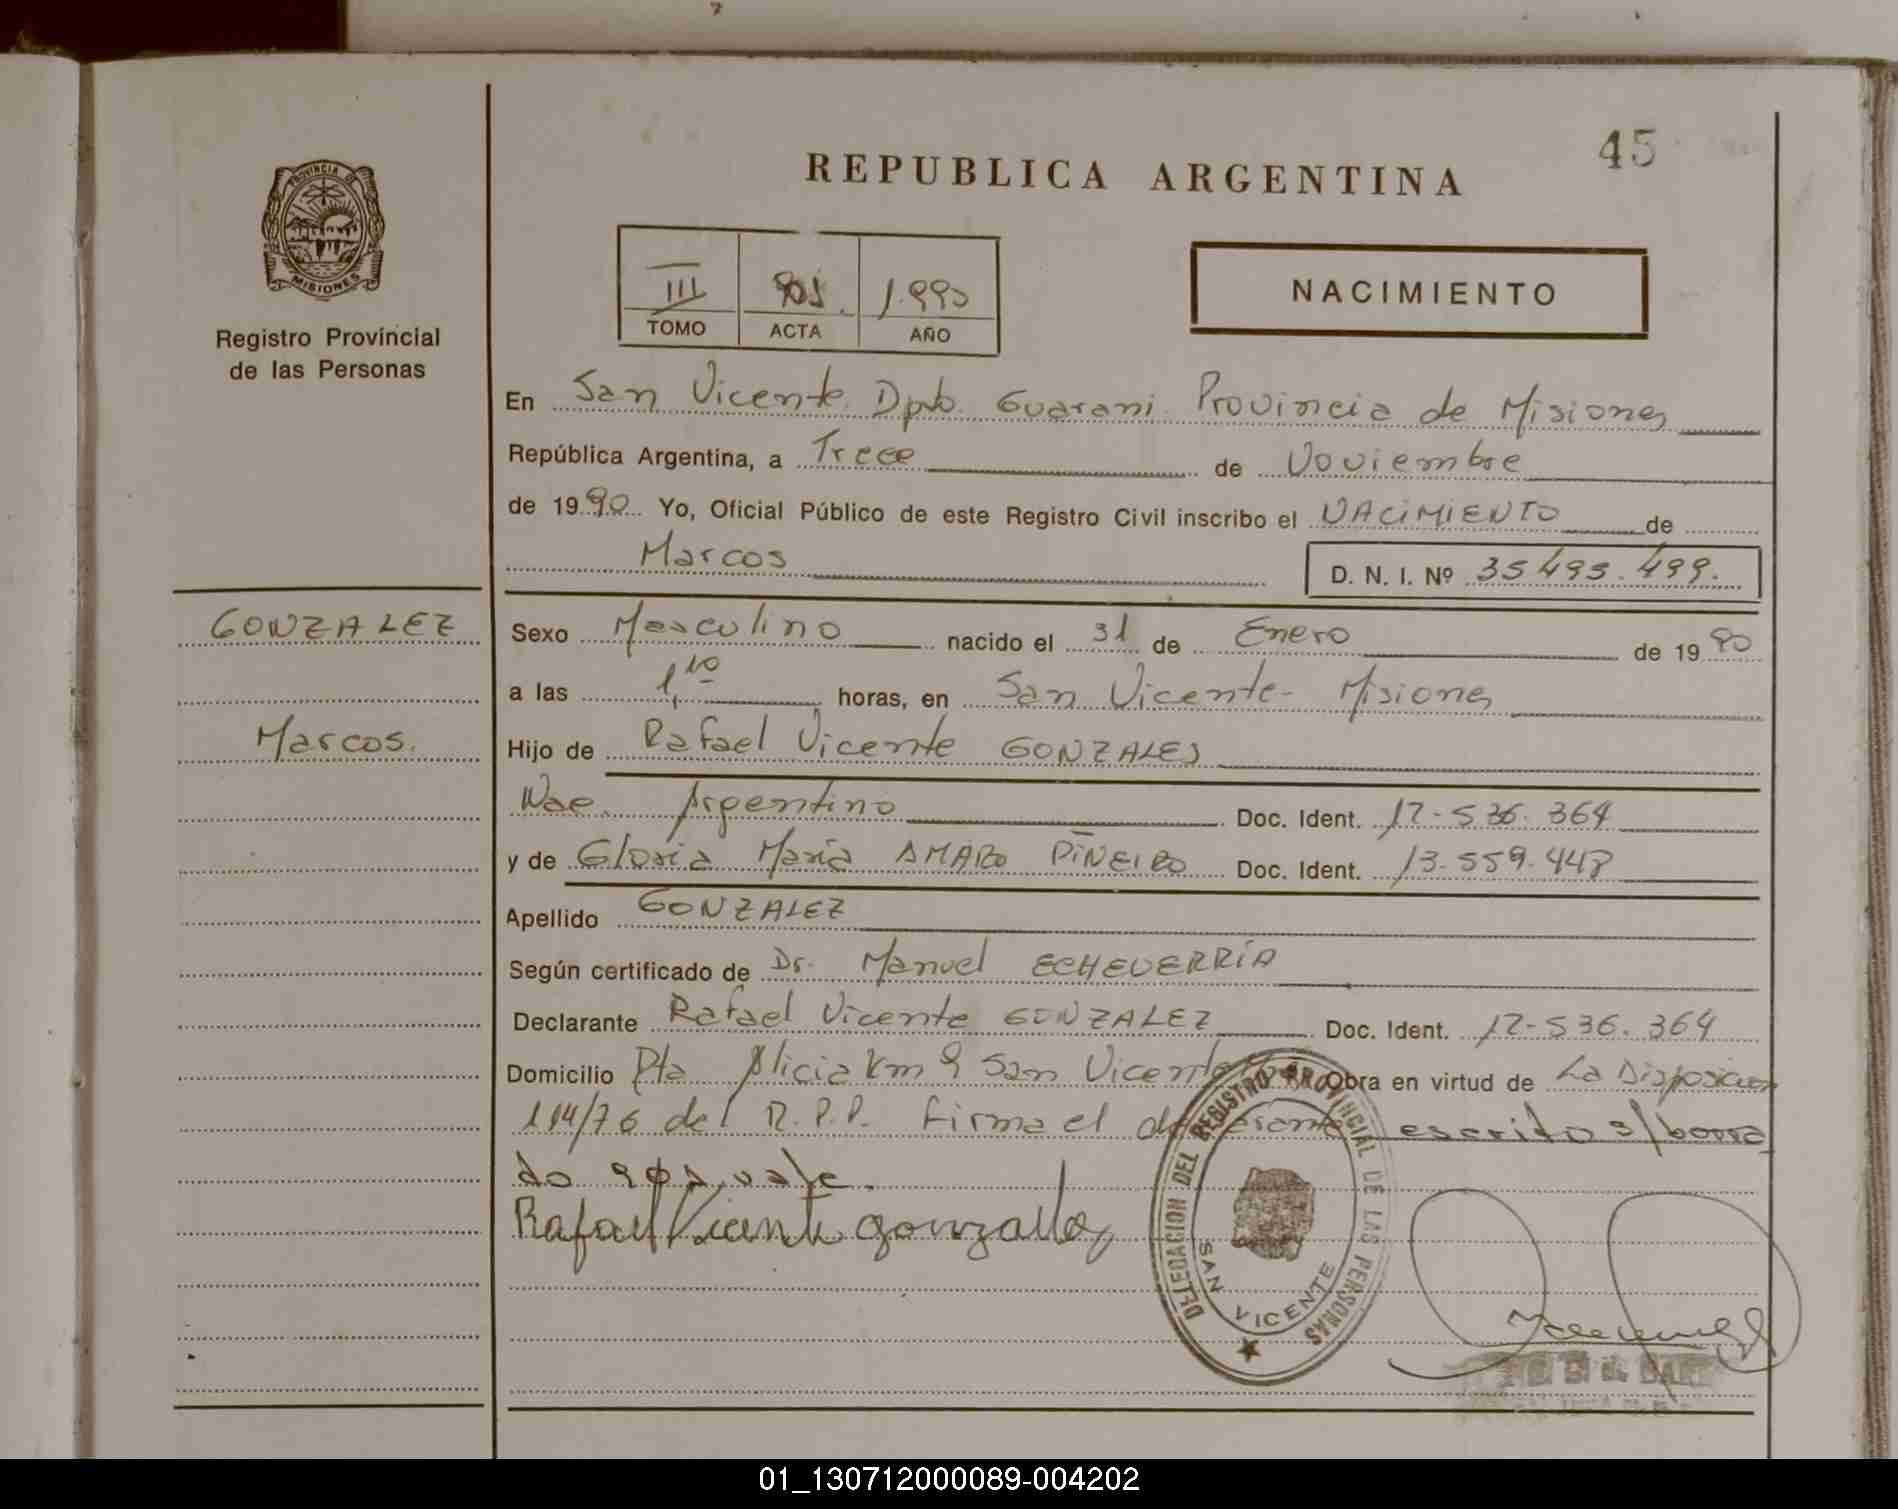 45
REPUBLICA ARGENTINA
PROVINCIA DE
MISIONES
Registro Provincial
de las Personas
III 901. 1.990
TOMO ACTA AÑO
NACIMIENTO
En San Vicente. Dpto. Guarani. Provincia de Misiones
República Argentina, a Trece de Noviembre
de 1990 Yo, Oficial Público de este Registro Civil inscribo el NACIMIENTO de
Marcos D. N. I. Nº 35.495.499.
GONZALEZ
Marcos.
Sexo Masculino nacido el 31 de Enero de 1990
a las 1,10 horas, en San Vicente- Misiones
Hijo de Rafael Vicente GONZALES
Nac. Argentino Doc. Ident. 12-536.364
y de Gloria María AMARO PIÑEIRO Doc. Ident. 13.559.448
Apellido GONZALEZ
Según certificado de Dr. Manuel ECHEVERRÍA
Declarante Rafael Vicente GONZALEZ Doc. Ident. 12-536.364
Domicilio Pta Alicia Km 9 San Vicente Obra en virtud de La Disposicion
114/76 del R.P.P. Firma el declarante escrito s/borra
do 901, vale.
Rafael Vicente gonzalez
DELEGACION DEL REGISTRO PROVINCIAL DE LAS PERSONAS
SAN VICENTE
01_130712000089-004202